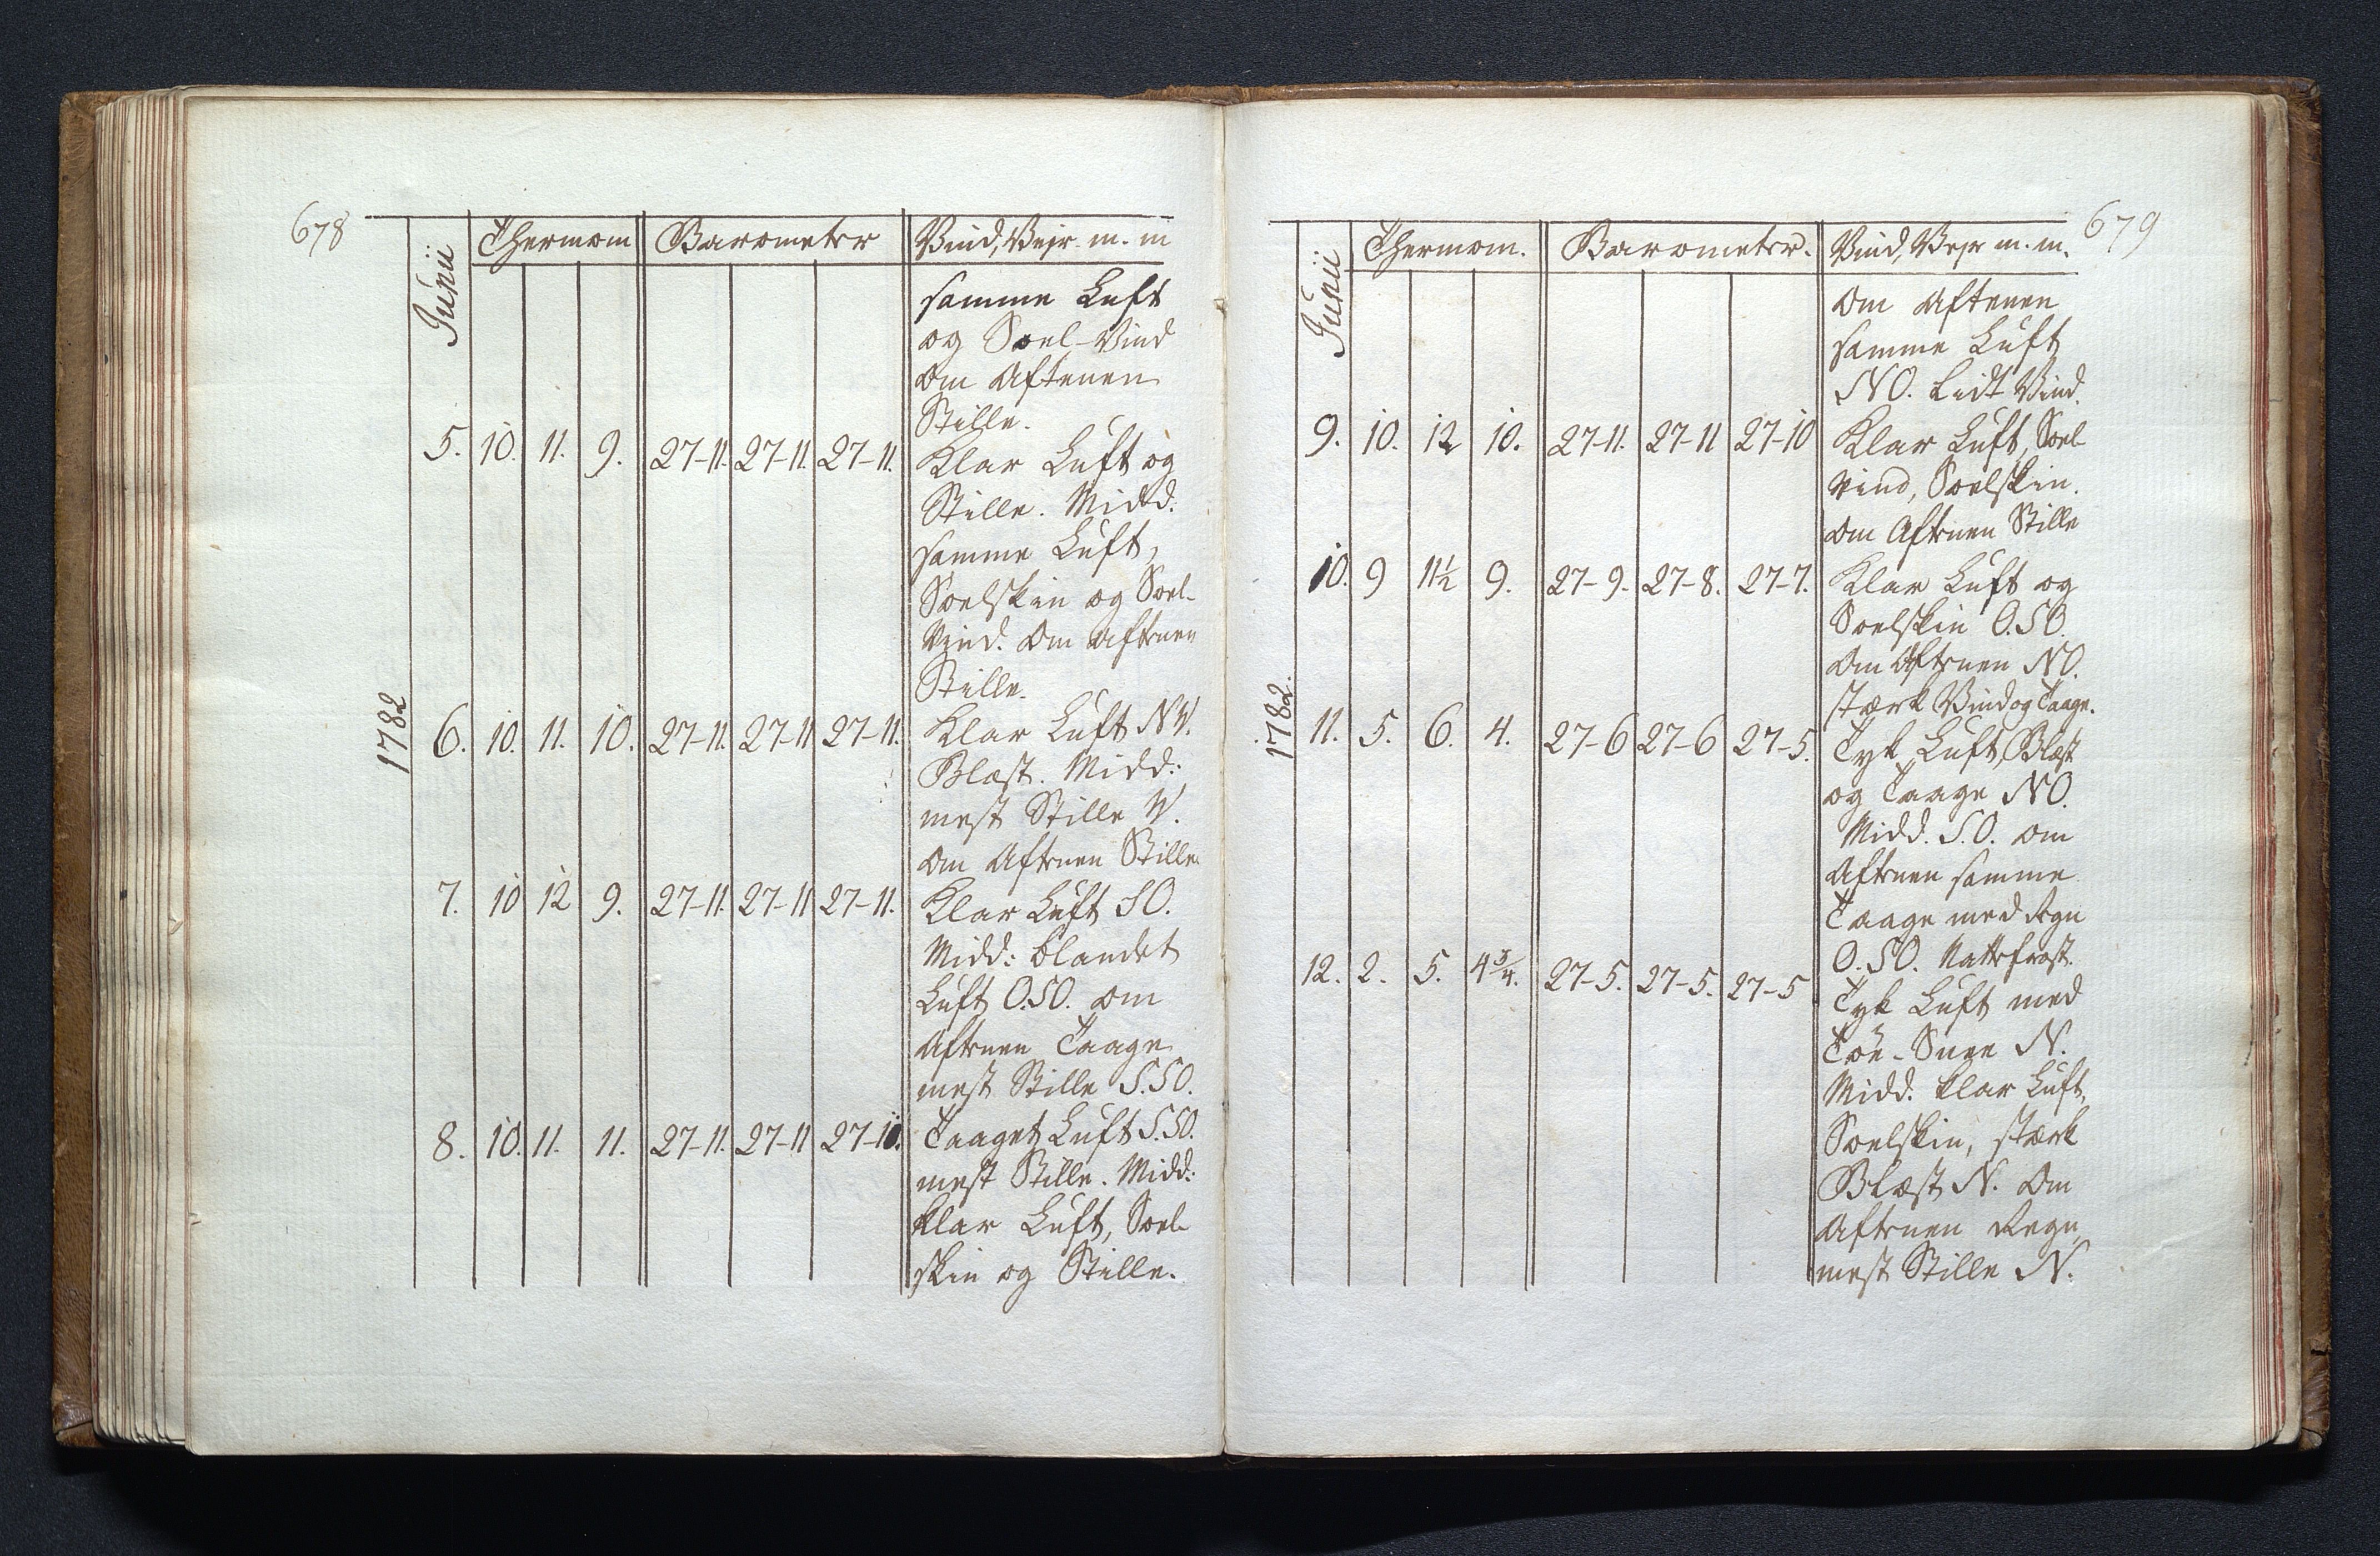 678
Junii
Thermom
Barometer
Vind, Vejr m. m
samme Luft
og Soel-Vind
Om Aftenen
Stille.
5. 10. 11. 9. 27-11. 27-11. 27-11. Klar Luft og
Stille. Midd:
samme Luft,
Soelskin og Soel-
Vind. Om Aftenen
Stille.
1782
6. 10. 11. 10. 27-11. 27-11 27-11. Klar Luft NW.
Blæst. Midd:
mest Stille W.
Om Aftenen Stille.
7. 10 12 9. 27-11. 27-11 27-11. Klar Luft SO.
Midd: blandet
Luft O.SO. om
Aftenen Taage
mest Stille S.SO.
8. 10. 11. 11. 27-11. 27-11 27-10. Taaget Luft S.SO.
mest Stille. Midd:
klar Luft, Soel-
skin og Stille.
679
Junii
Thermom.
Barometer.
Vind, Vejr m. m.
Om Aftenen
samme Luft
NO. Lidt Vind.
9. 10. 12 10. 27-11. 27-11 27-10 Klar Luft, Soel
Vind, Soelskin.
Om Aftenen Stille
10. 9 11½ 9. 27-9. 27-8. 27-7. Klar Luft og
Soelskin O.SO.
Om Aftenen NO.
stærk Vind og Taage.
1782.
11. 5. 6. 4. 27-6 27-6 27-5. Tyk Luft, Blæst
og Taage NO.
Midd. S.O. om
Aftenen samme
Taage med Regn
O.SO. Nattefrost.
12. 2. 5. 4¾. 27-5. 27-5. 27-5 Tyk Luft med
Töe-Snee N.
Midd. klar Luft,
Soelskin, stærk
Blæst N. Om
Aftenen Regn,
mest Stille N.